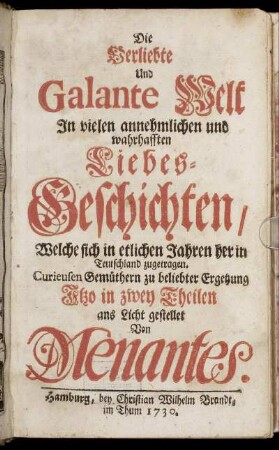 Die
Verliebte
Und
Galante Welt
In vielen annehmlichen und
wahrhafften
Liebes-
Geschichten /
Welche sich in etlichen Jahren her in
Teutschland zugetragen.
Curieusen Gemüthern zu beliebter Ergetzung
Itzo in zwey Theilen
ans Licht gestellet
Von
Menantes.
Hamburg, bey Christian Wilhelm Brandt,
im Thum 1730.